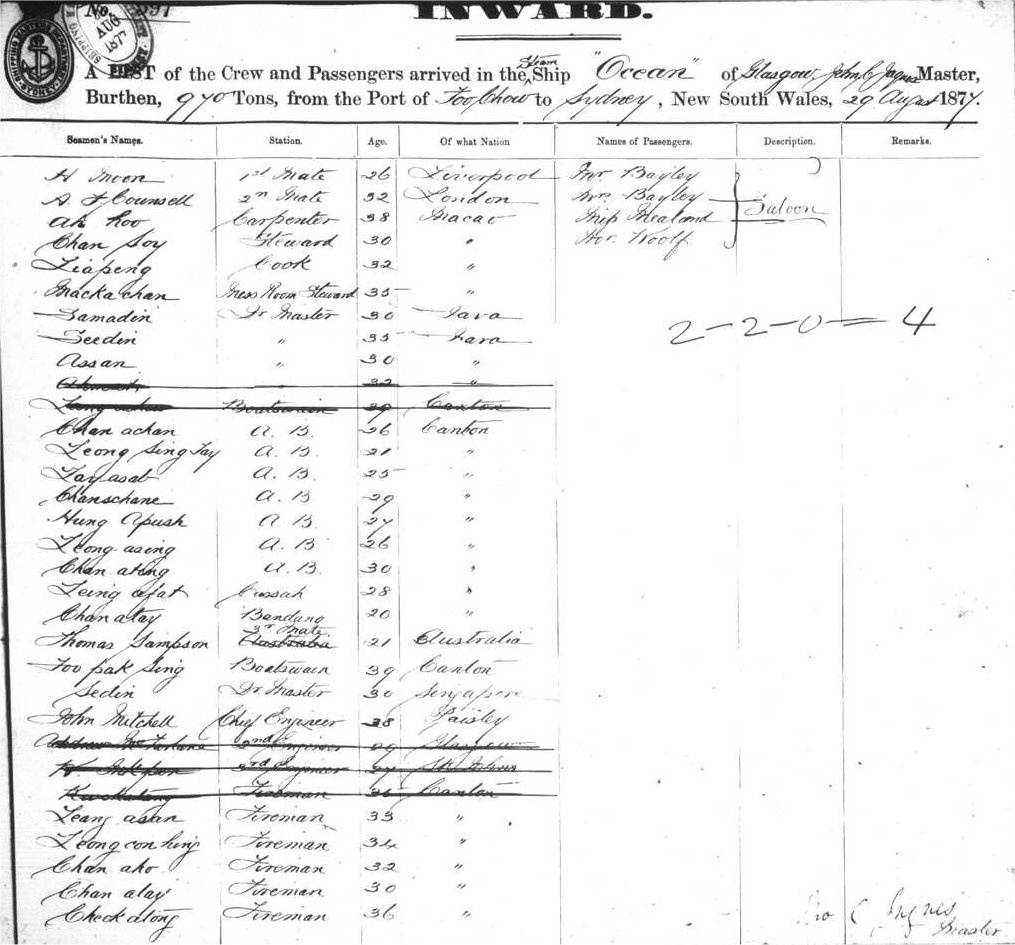 No. 597
AUG
1877
SHIPPING MASTERS DEPARTMENT
INWARD.
A LIST of the Crew and Passengers arrived in the Steam Ship "Ocean" of Glasgow, John C Jaques Master,
Burthen, 970 Tons, from the Port of Foo Chow to Sydney, New South Wales, 29 August 1877.
Seamen's Names. Station. Age. Of what Nation Names of Passengers. Description. Remarks.
H Moon 1st Mate 26 Liverpool Mr Bayley
A. F Counsell 2n Mate 32 London Mrs. Bayley Saloon
Ah hoo Carpenter 38 Macao Miss Mealand
Chan Soy Steward 30 " Mr. Woolf
Liapeng Cook 32 "
Macka chan Mess Room Steward 35 "
Samadin Qr Master 30 Java
Seedin " 35 Java
2-2-0=4
Assan " 30 "
" 32 "
Boatswain 29 Canton
Chan achan A. B. 26 Canton
Leong Sing Tay A. B. 21 "
Tay asat A. B. 25 "
Chanschane A. B 29 "
Hung Apush A B. 27 "
Leong asing A. B 26 "
Chan atong A. B. 30 "
Leing afat Cussah 28 "
Chan atay Bandung 20 "
Thomas Sampson 3rd Mate Australia 21 Australia
Foo pak Sing Boatswain 39 Canton
Sedin Qr Master 30 Singapore
John Mitchell Chief Engineer 38 Paisley
Andrew McFarlane 2nd Engineer 29 Glasgow
3rd Engineer 27
Fireman 35 Canton
Leang asan Fireman 33 "
Leong con hing Fireman 34 "
Chan aho Fireman 32 "
Chan alay Fireman 30 "
Check along Fireman 36 "
Jno C Jaques
Master